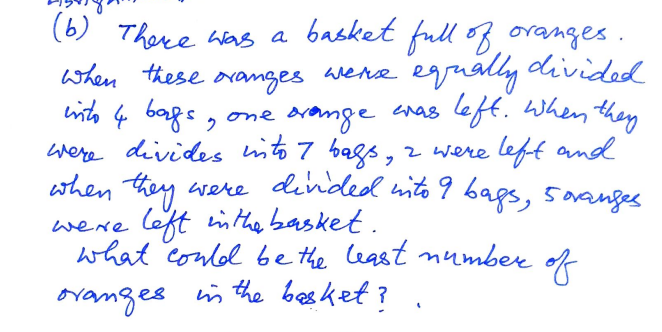 (b) There was a basket full of oranges.
When these oranges were equally divided
into 4 bags, one orange was left. When they
were divides into 7 bags, 2 were left and
when they were divided into 9 bags, 5 oranges
were left in the basket.
What could be the least number of
oranges in the basket?